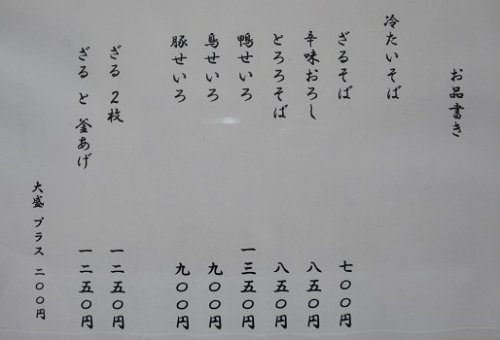 お品書き
冷たいそば
ざるそば 七〇〇円
辛味おろし 八五〇円
とろろそば 八五〇円
鴨せいろ 一三五〇円
鳥せいろ 九〇〇円
豚せいろ 九〇〇円
ざる 2枚 一二五〇円
ざる と 釜あげ 一二五〇円
大盛 プラス 二〇〇円